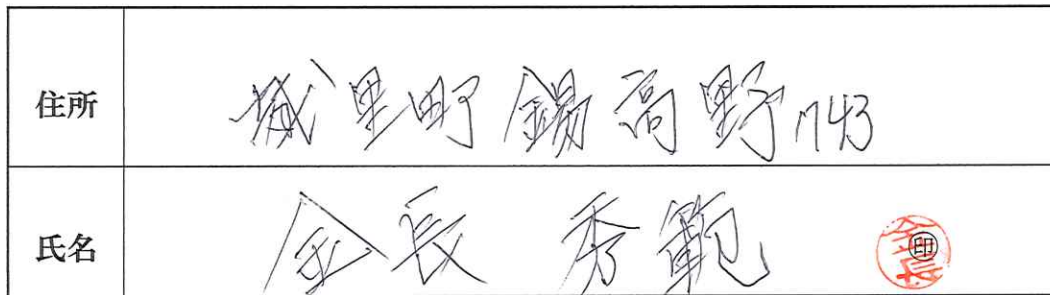 住所 城里町錫高野1743
氏名 金長 秀範 ㊞